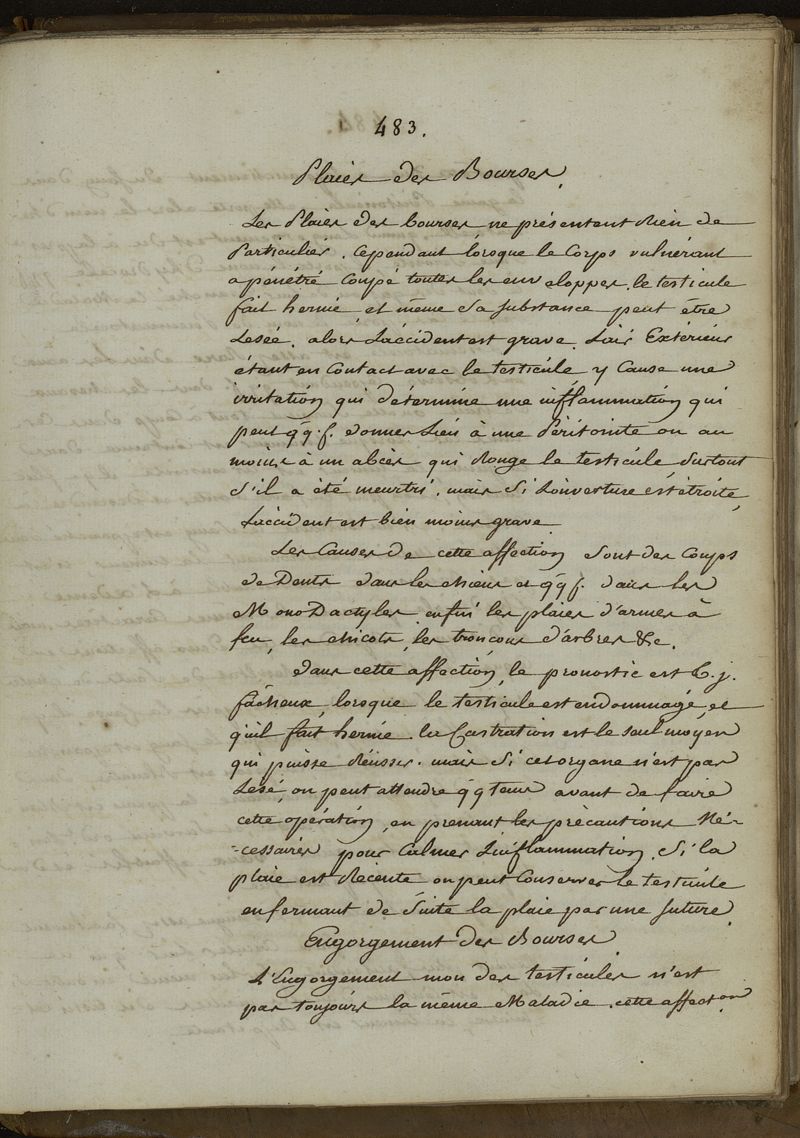 483.
Plaies des Bourses.
Les Plaies des bourses ne présentent Rien de
Particulier. Cependant lorsque le Corps vulnérant
a pénétré Coupé toutes les enveloppes, le testicule
fait hernie, et même Sa substance peut être
Lesée. alors L'accident est grave. L'air Extérieur
étant en Contact avec le testicule y Cause une
irritation qui détermine une inflammation qui
peut qq. f. donner Lieu à une Péritonite ou au
moins à un abcès qui Ronge le testicule Surtout
S'il a été meurtri. mais Si L'ouverture est étroite,
L'accident est bien moins grave.
Les Causes de cette affection Sont des Coups
de Dents dans les chiens et qq f. dans les
MonoDactyles, enfin les plaies d'armes à
feu, les chicots, les tronçons d'arbres &c.
dans cette affection, le pronostic est t. j.
fâcheux, lorsque le testicule est endommagé, et
qu'il fait hernie. La Castration est le seul moyen
qui puisse Réussir. mais Si cet organe n'est pas
Lesé, on peut attendre qq tems avant de faire
cette opération, en prenant les précautions Né-
-cessaires pour Calmer L'inflammation. Si la
plaie est Récente on peut Conserver le testicule
en fermant de Suite la plaie par une suture.
Engorgement des Bourses.
L'Engorgement mou des testicules n'est
pas toujours la même Maladie. cette affection